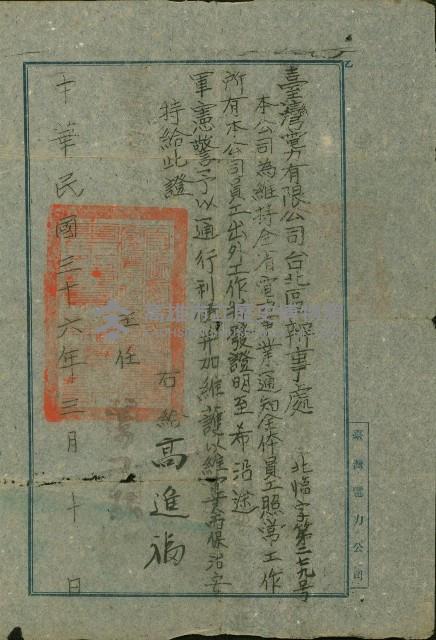 臺灣電力有限公司台北區辦事處
北臨字第三七九号
本公司為維持全省電氣事業通知全体員工照常工作
所有本公司員工出外工作特發證明至希沿途
軍憲警予以通行利便并加維護以維 而保治安
特給此證
右給 高進福
主任
中華民國三十六年三月十日
臺灣電力公司
乙